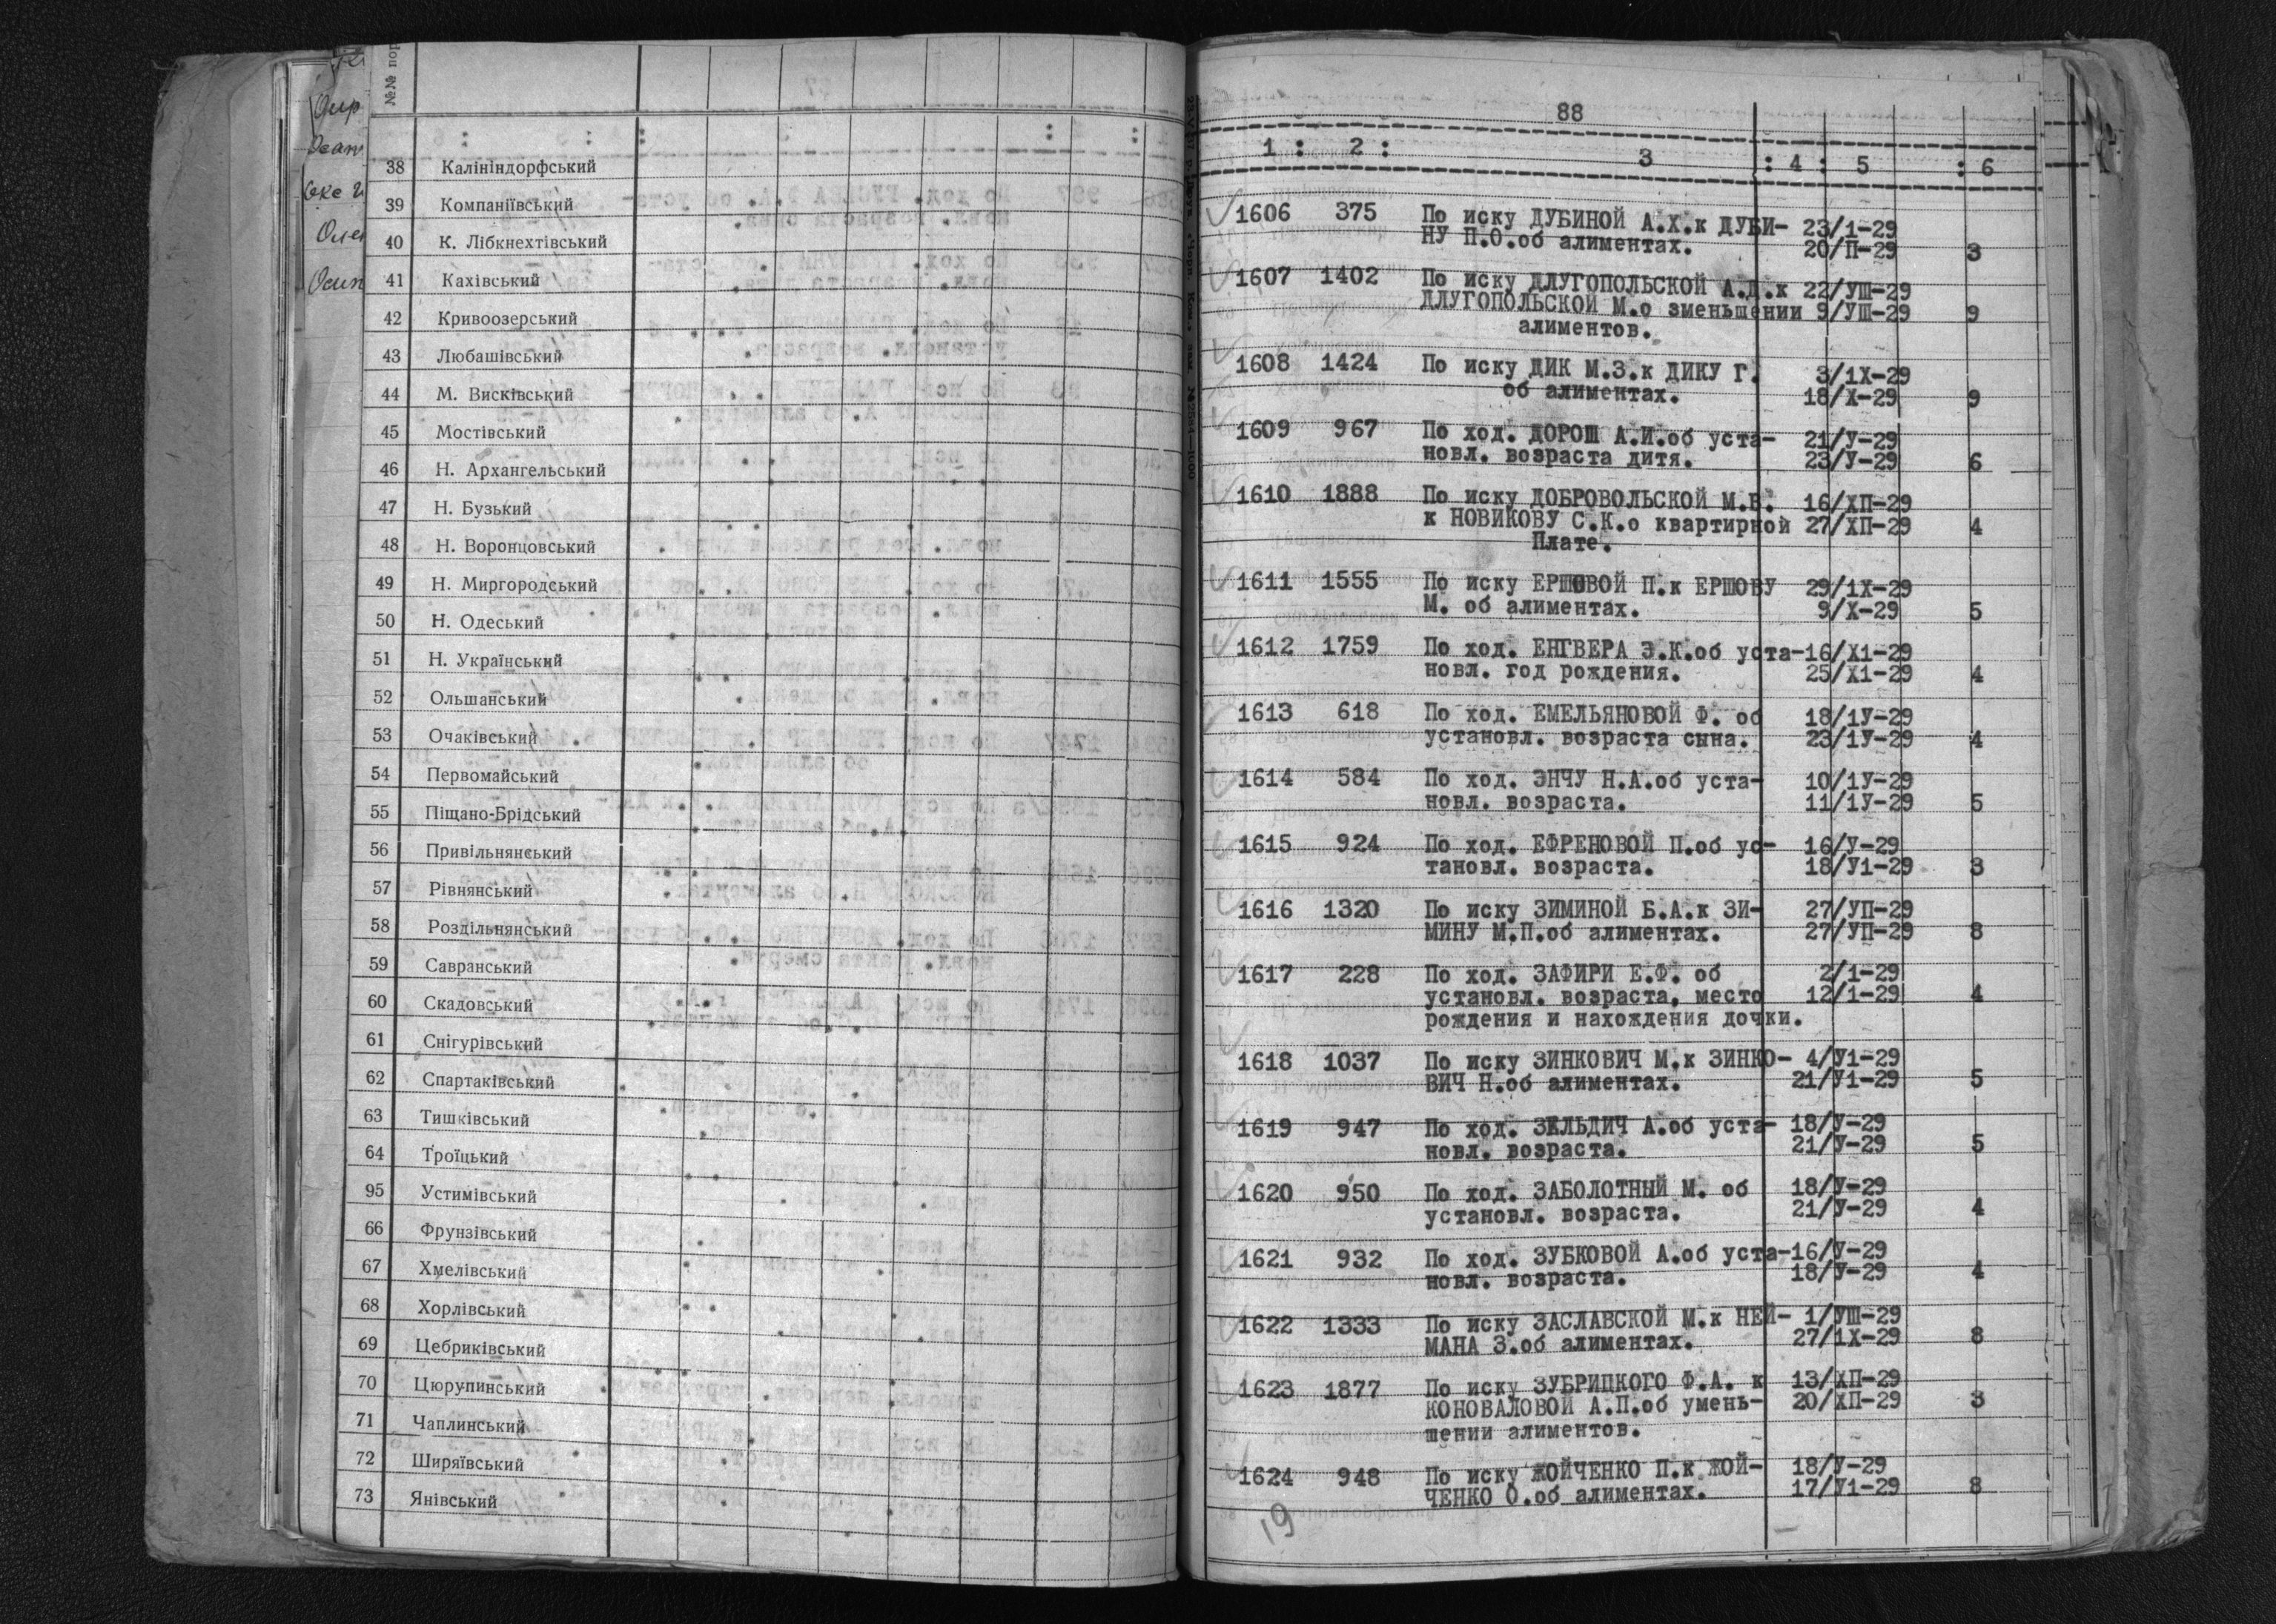 №№ пор
38 Калініндорфський
39 Компаніївський
40 К. Лібкнехтівський
41 Кахівський
42 Кривоозерський
43 Любашівський
44 М. Висківський
45 Мостівський
46 Н. Архангельський
47 Н. Бузький
48 Н. Воронцовський
49 Н. Миргородський
50 Н. Одеський
51 Н. Український
52 Ольшанський
53 Очаківський
54 Первомайський
55 Піщано-Брідський
56 Привільнянський
57 Рівнянський
58 Роздільнянський
59 Савранський
60 Скадовський
61 Снігурівський
62 Спартаківський
63 Тишківський
64 Троїцький
95 Устимівський
66 Фрунзівський
67 Хмелівський
68 Хорлівський
69 Цебриківський
70 Цюрупинський
71 Чаплинський
72 Ширяївський
73 Янівський
88
1 : 2 : 3 : 4 : 5 : 6
1606 375 По иску ДУБИНОЙ А.Х.к ДУБИ- 23/1-29
НУ П.О.об алиментах. 20/П-29 3
1607 1402 По иску ДЛУГОПОЛЬСКОЙ А.Д.к 22/УШ-29
ДЛУГОПОЛЬСКОЙ М.о зменьшении 9/УШ-29 9
алиментов.
1608 1424 По иску ДИК М.З.к ДИКУ Г. 3/1Х-29
об алиментах. 18/Х-29 9
1609 967 По ход. ДОРОШ А.И.об уста- 21/У-29
новл. возраста дитя. 23/У-29 6
1610 1888 По иску ДОБРОВОЛЬСКОЙ М.В. 16/ХП-29
к НОВИКОВУ С.К.о квартирной 27/ХП-29 4
Плате.
1611 1555 По иску ЕРШОВОЙ П.к ЕРШОВУ 29/1Х-29
М. об алиментах. 9/Х-29 5
1612 1759 По ход. ЕНГВЕРА Э.К.об уста- 16/Х1-29
новл. год рождения. 25/Х1-29 4
1613 618 По ход. ЕМЕЛЬЯНОВОЙ Ф. об 18/1У-29
установл. возраста сына. 23/1У-29 4
1614 584 По ход. ЭНЧУ Н.А.об уста- 10/1У-29
новл. возраста. 11/1У-29 5
1615 924 По ход. ЕФРЕНОВОЙ П.об ус- 16/У-29
тановл. возраста. 18/У1-29 3
1616 1320 По иску ЗИМИНОЙ Б.А.к ЗИ- 27/УП-29
МИНУ М.П.об алиментах. 27/УП-29 8
1617 228 По ход. ЗАФИРИ Е.Ф. об 2/1-29
установл. возраста, место 12/1-29 4
рождения и нахождения дочки.
1618 1037 По иску ЗИНКОВИЧ М.к ЗИНКО- 4/У1-29
ВИЧ Н.об алиментах. 21/У1-29 5
1619 947 По ход. ЗЕЛЬДИЧ А.об уста- 18/У-29
новл. возраста. 21/У-29 5
1620 950 По ход. ЗАБОЛОТНЫЙ М. об 18/У-29
установл. возраста. 21/У-29 4
1621 932 По ход. ЗУБКОВОЙ А.об уста- 16/У-29
новл. возраста. 18/У-29 4
1622 1333 По иску ЗАСЛАВСКОЙ М.к НЕЙ- 1/УШ-29
МАНА З.об алиментах. 27/1Х-29 8
1623 1877 По иску ЗУБРИЦКОГО Ф.А. к 13/ХП-29
КОНОВАЛОВОЙ А.П.об умень- 20/ХП-29 3
шении алиментов.
1624 948 По иску ЖОЙЧЕНКО П.к ЖОЙ- 18/У-29
ЧЕНКО О.об алиментах. 17/У1-29 8
19